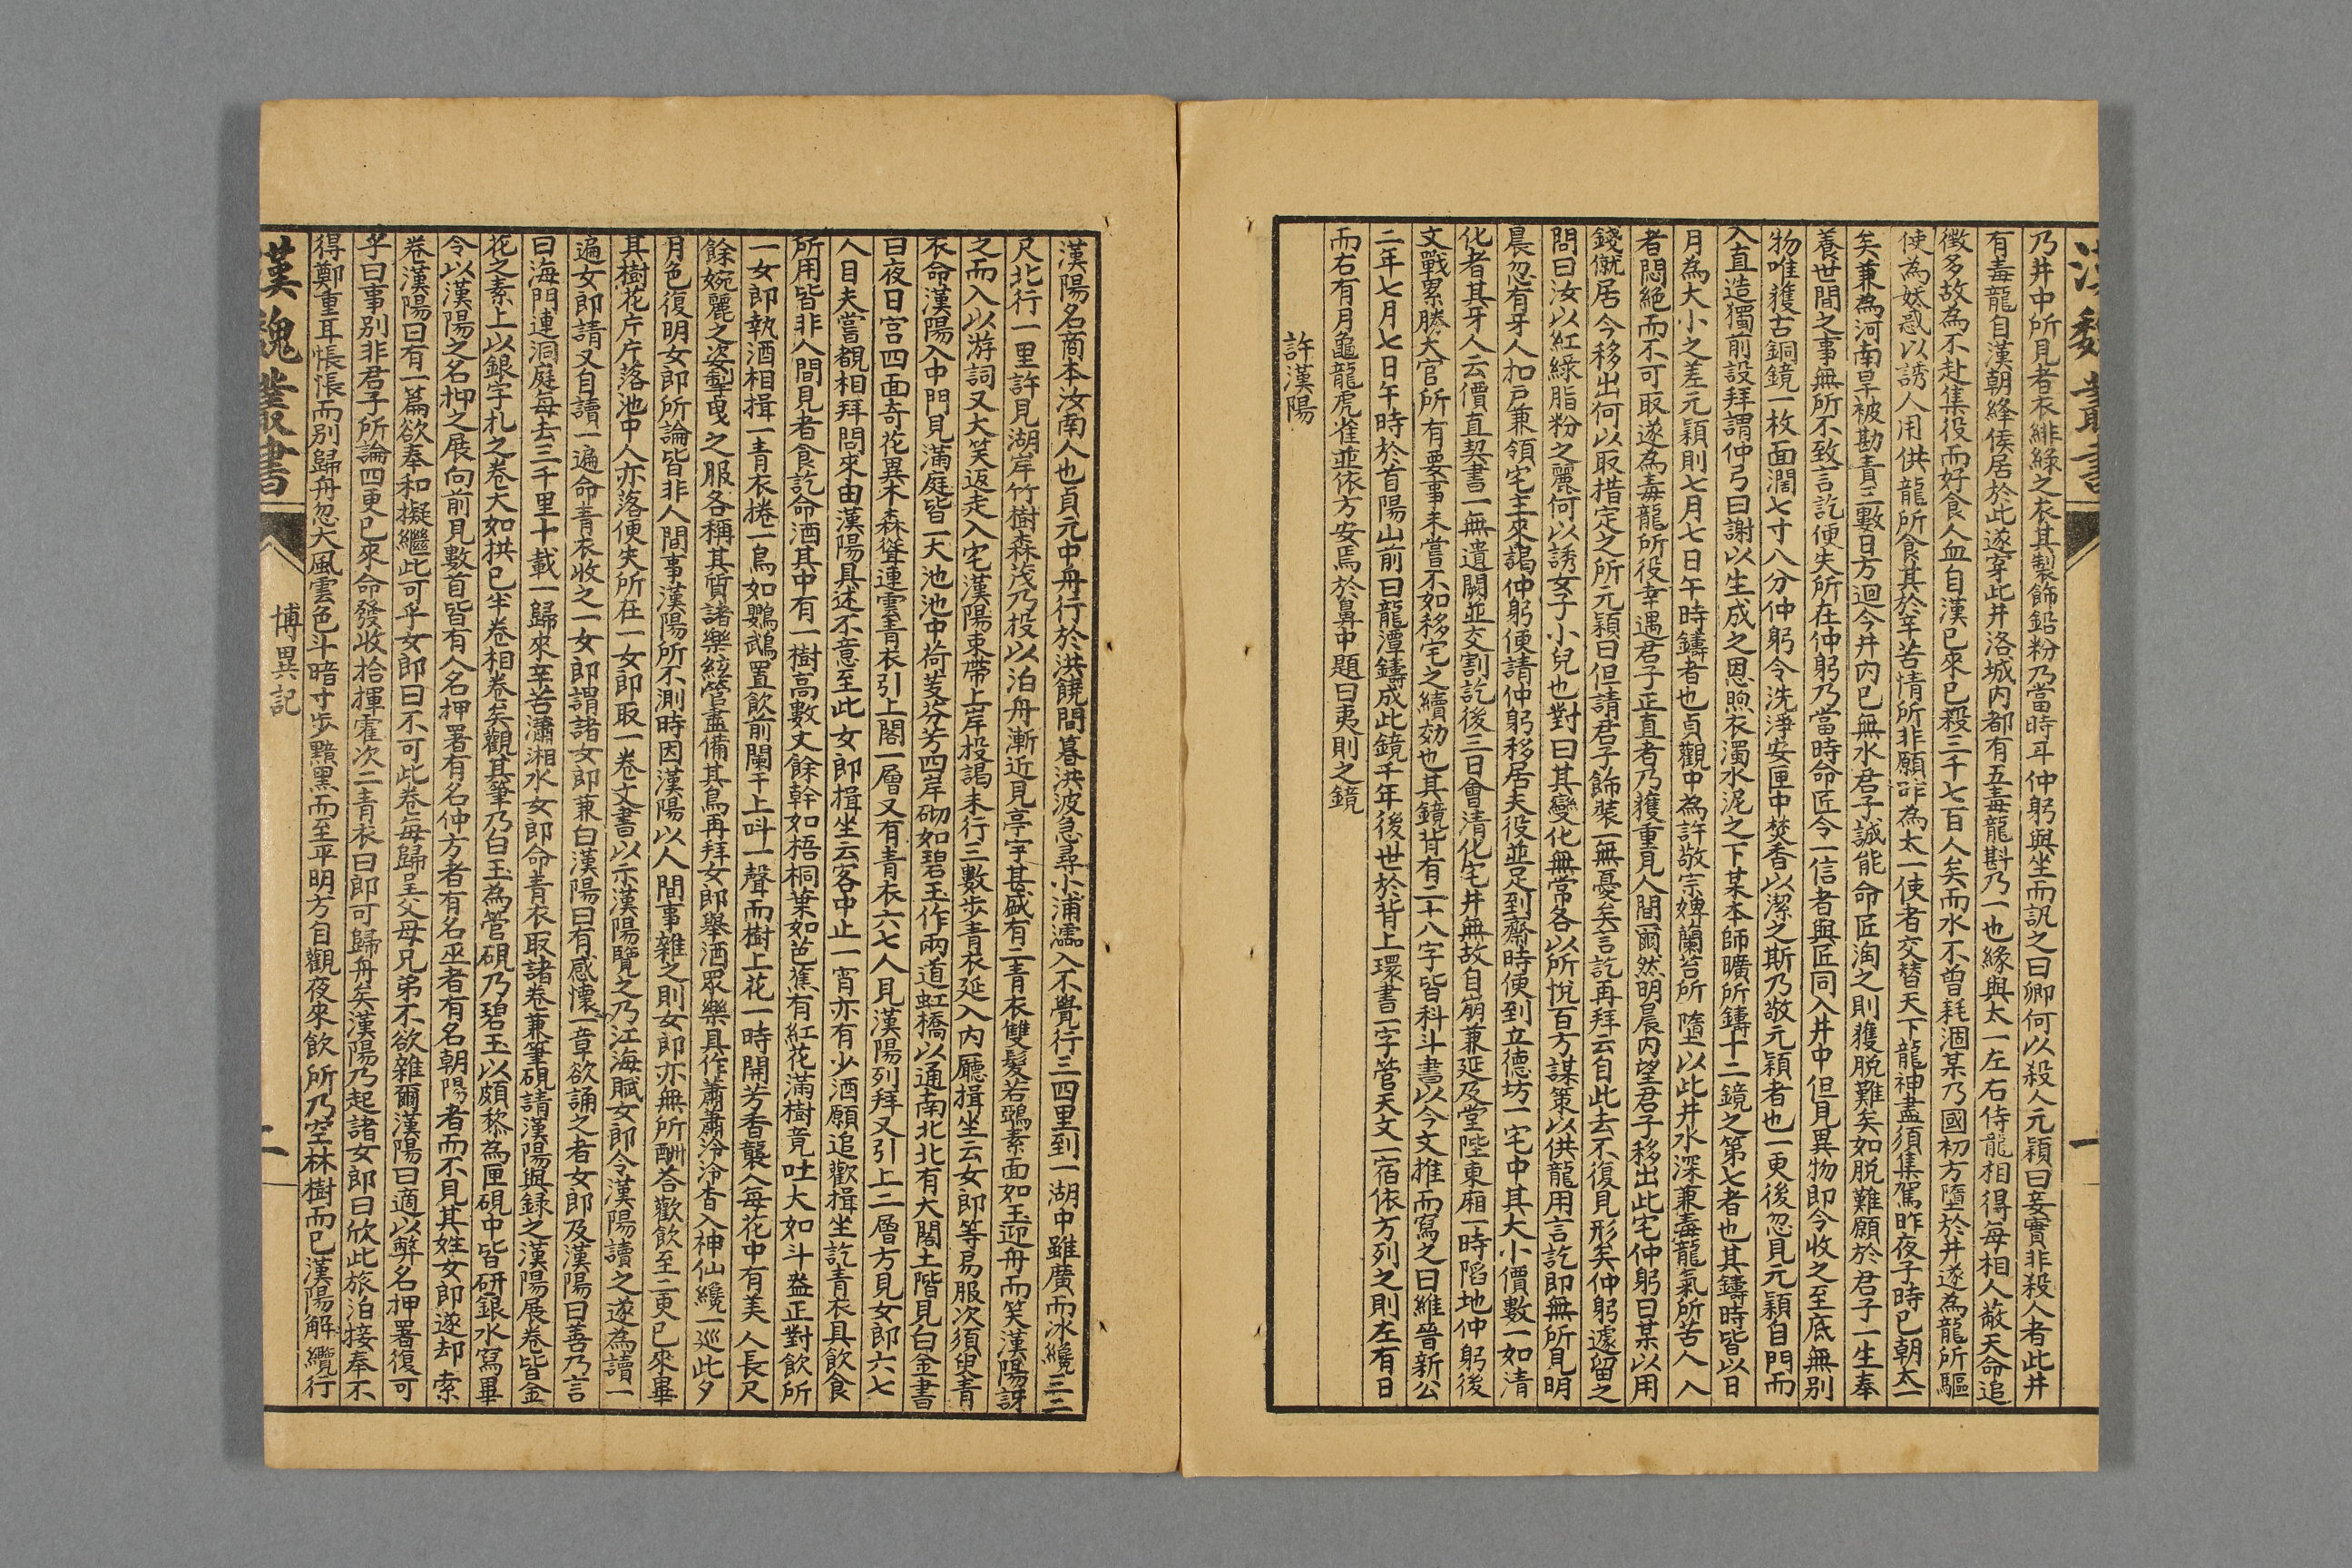 漢魏叢書
一
乃井中所見者衣緋綠之衣其製飾鉛粉乃當時耳仲躬與坐而訊之曰卿何以殺人元穎曰妾實非殺人者此井
有毒龍自漢朝絳侯居於此遂穿此井洛城內都有五毒龍斯乃一也緣與太一左右侍龍相得每相人蔽天命追
徵多故為不赴集役而好食人血自漢已來已殺三千七百人矣而水不曾耗涸某乃國初方墮於井遂為龍所驅
使為妖惑以誘人用供龍所食其於辛苦情所非願昨為太一使者交替天下龍神盡須集駕昨夜子時已朝太一
矣兼為河南旱被勘責三數日方迴今井內已無水君子誠能命匠淘之則獲脫難矣如脫難願於君子一生奉
養世間之事無所不致言訖便失所在仲躬乃當時命匠令一信者與匠同入井中但見異物即令收之至底無別
物唯獲古銅鏡一枚面濶七寸八分仲躬令洗淨安匣中焚香以潔之斯乃敬元穎者也一更後忽見元穎自門而
入直造獨前設拜謂仲弓曰謝以生成之恩煦衣濁水泥之下某本師曠所鑄十二鏡之第七者也其鑄時皆以日
月為大小之差元穎則七月七日午時鑄者也貞觀中為許敬宗婢蘭苔所墮以此井水深兼毒龍氣所苦人入
者悶絕而不可取遂為毒龍所役幸遇君子正直者乃獲重見人間爾然明晨內望君子移出此宅仲躬曰某以用
錢僦居今移出何以取措定之所元穎曰但請君子飾裝一無憂矣言訖再拜云自此去不復見形矣仲躬遽留之
問曰汝以紅綠脂粉之麗何以誘女子小兒也對曰某變化無常各以所悅百方謀策以供龍用言訖即無所見明
晨忽有牙人扣戶兼領宅主來謁仲躬便請仲躬移居夫役並足到齋時便到立德坊一宅中其大小價數一如清
化者其牙人云價直契書一無遺闕並交割訖後三日會清化宅井無故自崩兼延及堂陛東廂一時陷地仲躬後
文戰累勝大官所有要事未嘗不如移宅之績効也其鏡背有二十八字皆科斗書以今文推而寫之曰維晉新公
二年七月七日午時於首陽山前白龍潭鑄成此鏡千年後世於背上環書一字管天文一宿依方列之則左有日
而右有月龜龍虎雀並依方安焉於鼻中題曰夷則之鏡
許漢陽
漢陽名商本汝南人也貞元中舟行於洪饒間暮洪波急尋小浦濡入不覺行三四里到一湖中雖廣而水纔三二
尺北行一里許見湖岸竹樹森茂乃投以泊舟漸近見亭宇甚盛有二青衣雙髮若鴉素面如玉迎舟而笑漢陽訝
之而入以游詞又大笑返走入宅漢陽束帶上岸投謁未行三數步青衣延入內廳揖坐云女郎等易服次須臾青
衣命漢陽入中門見滿庭皆一大池池中荷芰芬芳四岸砌如碧玉作兩道虹橋以通南北北有大閣上階見白金書
曰夜日宮四面奇花異木森聳連雲青衣引上閣一層又有青衣六七人見漢陽列拜又引上二層方見女郎六七
人目夫嘗覩相拜問來由漢陽具述不意至此女郎揖坐云客中止一宵亦有少酒願追歡揖坐訖青衣具飲食
所用皆非人間見者食訖命酒其中有一樹高數丈餘幹如梧桐葉如芭蕉有紅花滿樹竟吐大如斗盎正對飲所
一女郎執酒相揖一青衣捲一鳥如鸚鵡置飲前闌干上叫一聲而樹上花一時開芳香襲人每花中有美人長尺
餘婉麗之姿掣曳之服各稱其質諸樂絃管盡備其鳥再拜女郎舉酒眾樂具作蕭蕭泠泠杳入神仙纔一巡此夕
月色復明女郎所論皆非人間事漢陽所不測時因漢陽以人間事雜之則女郎亦無所酬荅歡飲至二更已來畢
其樹花片片落池中人亦落便失所在一女郎取一卷文書以示漢陽覽之乃江海賦女郎令漢陽讀之遂為讀一
遍女郎請又自讀一遍命青衣收之一女郎謂諸女郎兼白漢陽曰有感懷一章欲誦之者女郎及漢陽曰善乃言
曰海門連洞庭每去三千里十載一歸來辛苦瀟湘水女郎命青衣取諸卷兼筆硯請漢陽與録之漢陽展卷皆金
花之素上以銀字札之卷大如拱已半卷相卷矣觀其筆乃白玉為管硯乃碧玉以頗黎為匣硯中皆研銀水寫畢
令以漢陽之名押之展向前見數首皆有人名押署有名仲方者有名巫者有名朝陽者而不見其姓女郎遂却索
卷漢陽曰有一篇欲奉和擬繼此可乎女郎曰不可此卷每歸呈父母兄弟不欲雜爾漢陽曰適以弊名押署復可
乎曰事别非君子所論四更已來命發收拾揮霍次二青衣曰郎可歸舟矣漢陽乃起諸女郎曰欣此旅泊接奉不
得鄭重耳悵悵而别歸舟忽大風雲色斗暗寸步黯黑而至平明方自觀夜來飲所乃空林樹而已漢陽解纜行
漢魏叢書
博異記
二